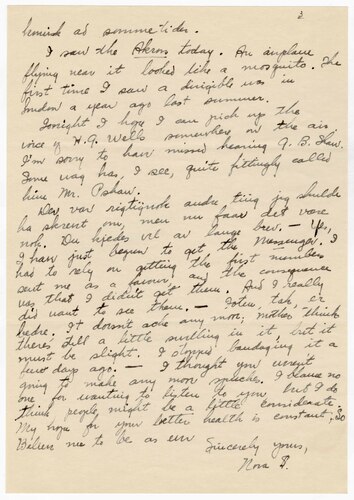 3
henvisk ad sommetider.
I saw the Akron today. An airplane
flying near it looked like a mosquito. The
first time I saw a dirigible was in
London a year ago last summer.
Tonight I hope I can pick up the
voice of H.G. Wells somewhere on the air.
I'm sorry to have missed hearing G. B. Shaw.
Some wag has, I see, quite fittingly called
him Mr. Pshaw.
Der var rigtignok andre ting jeg skulde
ha skrevet om, men nu faar det være
nok. Du kjedes vel av lange brev. — Yes,
I have just begun to get the Messenger. I
had to rely on getting the first numbers
sent me as a favour, and the consequence
was that I didn't get them. And I really
did want to see them. — Foten, tak, er
bedre. It doesn't ache any more; mother thinks
there's still a little swelling in it, but it
must be slight. I stopped bandaging it a
few days ago. — I thought you weren't
going to make any more speeches. I blame no
one for wanting to listen to you, but I do
think people might be a little considerate.
My hope for your better health is constant. So
Believe me to be as ever
Sincerely yours,
Nora B.